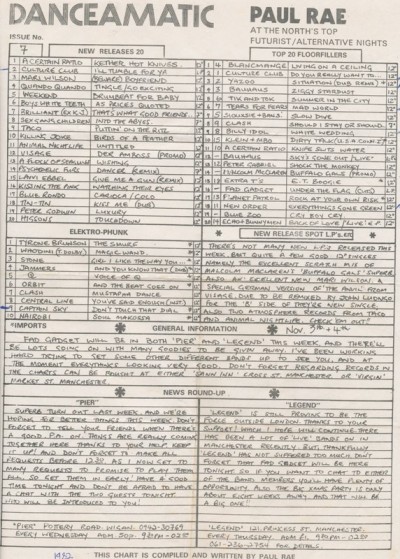 DANCEAMATIC
PAUL RAE
AT THE NORTH'S TOP
FUTURIST/ALTERNATIVE NIGHTS
ISSUE No.
7
NEW RELEASES 20
TOP 20 FLOORFILLERS
1 A CERTAIN RATIO KETHER HOT KNIVES
2 CULTURE CLUB I'LL TUMBLE FOR YA
3 MARI WILSON (BEWARE) BOYFRIEND
4 QUANDO QUANGO TINGLE/GO EXCITING
5 WEEKEND DRUMBEAT FOR BABY
6 BOYS WHITE TEETH AS PRICES QUOTED
7 BRILLIANT (EX K.J) THAT'S WHAT GOOD FRIENDS...
8 SEX GANG CHILDREN INTO THE ABYSS
9 TACO PUTTIN' ON THE RITZ
10 KILLING JOKE BIRDS OF A FEATHER
11 ANIMAL NIGHTLIFE UNTITLED
12 VISAGE (PROMO)
13 A FLOCK OF SEAGULLS WISHING
14 PSYCHEDELIC FURS DANCE (REMIX)
15 GIVE ME A GUN (REMIX)
16 KISSING THE PINK WATCHING THEIR EYES
17 BLUE RONDO CARIOCA / COLD
18 TIN-TIN KISS ME (DUB)
19 PETER GODWIN LUXURY
20 HIGSONS TOUCHDOWN
1 4 BLANCMANGE LIVING ON A CEILING
2 1 CULTURE CLUB DO YOU REALLY WANT TO...
3 2 YAZOO SITUATION (DUB REMIX)
4 3 BAUHAUS ZIGGY STARDUST
5 6 TIK AND TOK SUMMER IN THE CITY
6 7 TEARS FOR FEARS MAD WORLD
7 5 SIOUXSIE + BANS. SLOW DIVE
8 CLASH SHOULD I STAY OR SHOULD..
9 8 BILLY IDOL WHITE WEDDING
10 5 KLEIN + MBO DIRTY TALK (U.S.A CONNECT)
11 A CERTAIN RATIO KNIFE SLITS WATER
12 BAUHAUS SKY'S GONE OUT "LIVE"
13 PETER GABRIEL SHOCK THE MONKEY
14 MALCOLM McLAREN BUFFALO GALS (PROMO)
15 E.T. BOOGIE
16 FAD GADGET UNDER THE FLAG (CUTS)
17 PLANET PATROL ROCK AT YOUR OWN RISK
18 NEW ORDER EVERYTHINGS GONE GREEN
19 BLUE ZOO CRY BOY CRY
20 ECHO + BUNNYMEN BACK OF LOVE/LIVE E.P
ELEKTRO-PHUNK
NEW RELEASE SPOT LP's ETC
1 TYRONE BRUNSON THE SMURF
2 WHODINI (T. DOLBY) MAGIC'S WAND
3 STONE GIRL I LIKE THE WAY...
4 JAMMERS AND YOU KNOW THAT (DUB)
5 Q VOICE OF Q
6 ORBIT AND THE BEAT GOES ON
7 CLASH MUSTAPHA DANCE
8 CENTRAL LINE YOU'VE SAID ENOUGH (INST)
9 CAPTAIN SKY DON'T TOUCH THAT DIAL
10 NAIROBI SOUL MAKOSSA
THERE'S NOT MANY NEW L.P'S RELEASED THIS
WEEK BUT QUITE A FEW GOOD 12" SINGLES
NAMELY THE EXCELLENT SCRATCH MIX OF
MALCOLM McCLAREN'S 'BUFFALO GALS' SUPERB
ALSO AN EXCELLENT NEW MARI WILSON, A
SPECIAL GERMAN VERSION OF 'THE ANVIL' FROM
VISAGE DUE TO BE REMIXED BY JOHN LUONGO
FOR THE 'B' SIDE OF THEY'RE NEW SINGLE
ALSO TWO ATMOSPHERE RECORDS FROM TACO
AND ANIMAL NIGHTLIFE CHECK EM OUT!
*IMPORTS
GENERAL INFORMATION
Nov. 3rd + 4th
FAD GADGET WILL BE IN BOTH 'PIER' AND 'LEGEND' THIS WEEK AND THERE'LL
BE LOTS GOING ON WITH MANY GOODIES TO BE GIVEN AWAY. I'VE BEEN WORKING
HARD TRYING TO GET SOME OTHER DIFFERENT BANDS UP TO SEE YOU, AND AT
THE MOMENT EVERYTHING'S LOOKING VERY GOOD. DON'T FORGET REGARDING RECORDS IN
THE CHARTS CAN BE BOUGHT AT EITHER 'SPIN INN' CROSS ST, MANCHESTER OR 'VIRGIN'
MARKET ST. MANCHESTER.
NEWS ROUND-UP
"PIER"
SUPERB TURN OUT LAST WEEK, AND WE'RE
HOPING FOR BETTER THINGS THIS WEEK DON'T
FORGET TO TELL YOUR FRIENDS WHEN THERE'S
A GOOD P.A. ON. THINGS ARE REALLY COMING
TOGETHER HERE THANKS TO YOUR HELP KEEP
IT UP! AND DON'T FORGET TO MAKE ALL
REQUESTS BEFORE 12.30. AS I NOW GET TO
MANY REQUESTS TO PROMISE TO PLAY THEM
ALL SO GET THEM IN EARLY! HAVE A GOOD
TIME TONIGHT AND DON'T BE AFRAID TO HAVE
A CHAT WITH THE TWO GUESTS TONIGHT
WHO WILL BE INTRODUCED TO YOU!
"LEGEND"
'LEGEND' IS STILL PROVING TO BE THE
FORCE OUTSIDE LONDON THANKS TO YOUR
SUPPORT WHICH I HOPE WILL CONTINUE. THERE
HAS BEEN A LOT OF 'LIVE' BANDS ON IN
MANCHESTER RECENTLY BUT, THANKFULLY
LEGEND HAS NOT SUFFERED TOO MUCH, DON'T
FORGET THAT FAD GADGET WILL BE HERE
TONIGHT SO IF YOU WANT TO CHAT TO EITHER
OF THE BAND MEMBERS YOU'LL HAVE PLENTY OF
OPPORTUNITY. ALSO THE BIG XMAS PARTY IS ONLY
ABOUT EIGHT WEEKS AWAY AND THAT WILL BE
A BIG ONE!!
"PIER" POTTERY ROAD, WIGAN. 0942-30769
EVERY WEDNESDAY ADM 50p. 9PM-0230
'LEGEND' 121, PRINCESS ST. MANCHESTER.
EVERY THURSDAY. ADM £1. 9PM-0230
FOR DETAILS
1982
THIS CHART IS COMPILED AND WRITTEN BY PAUL RAE